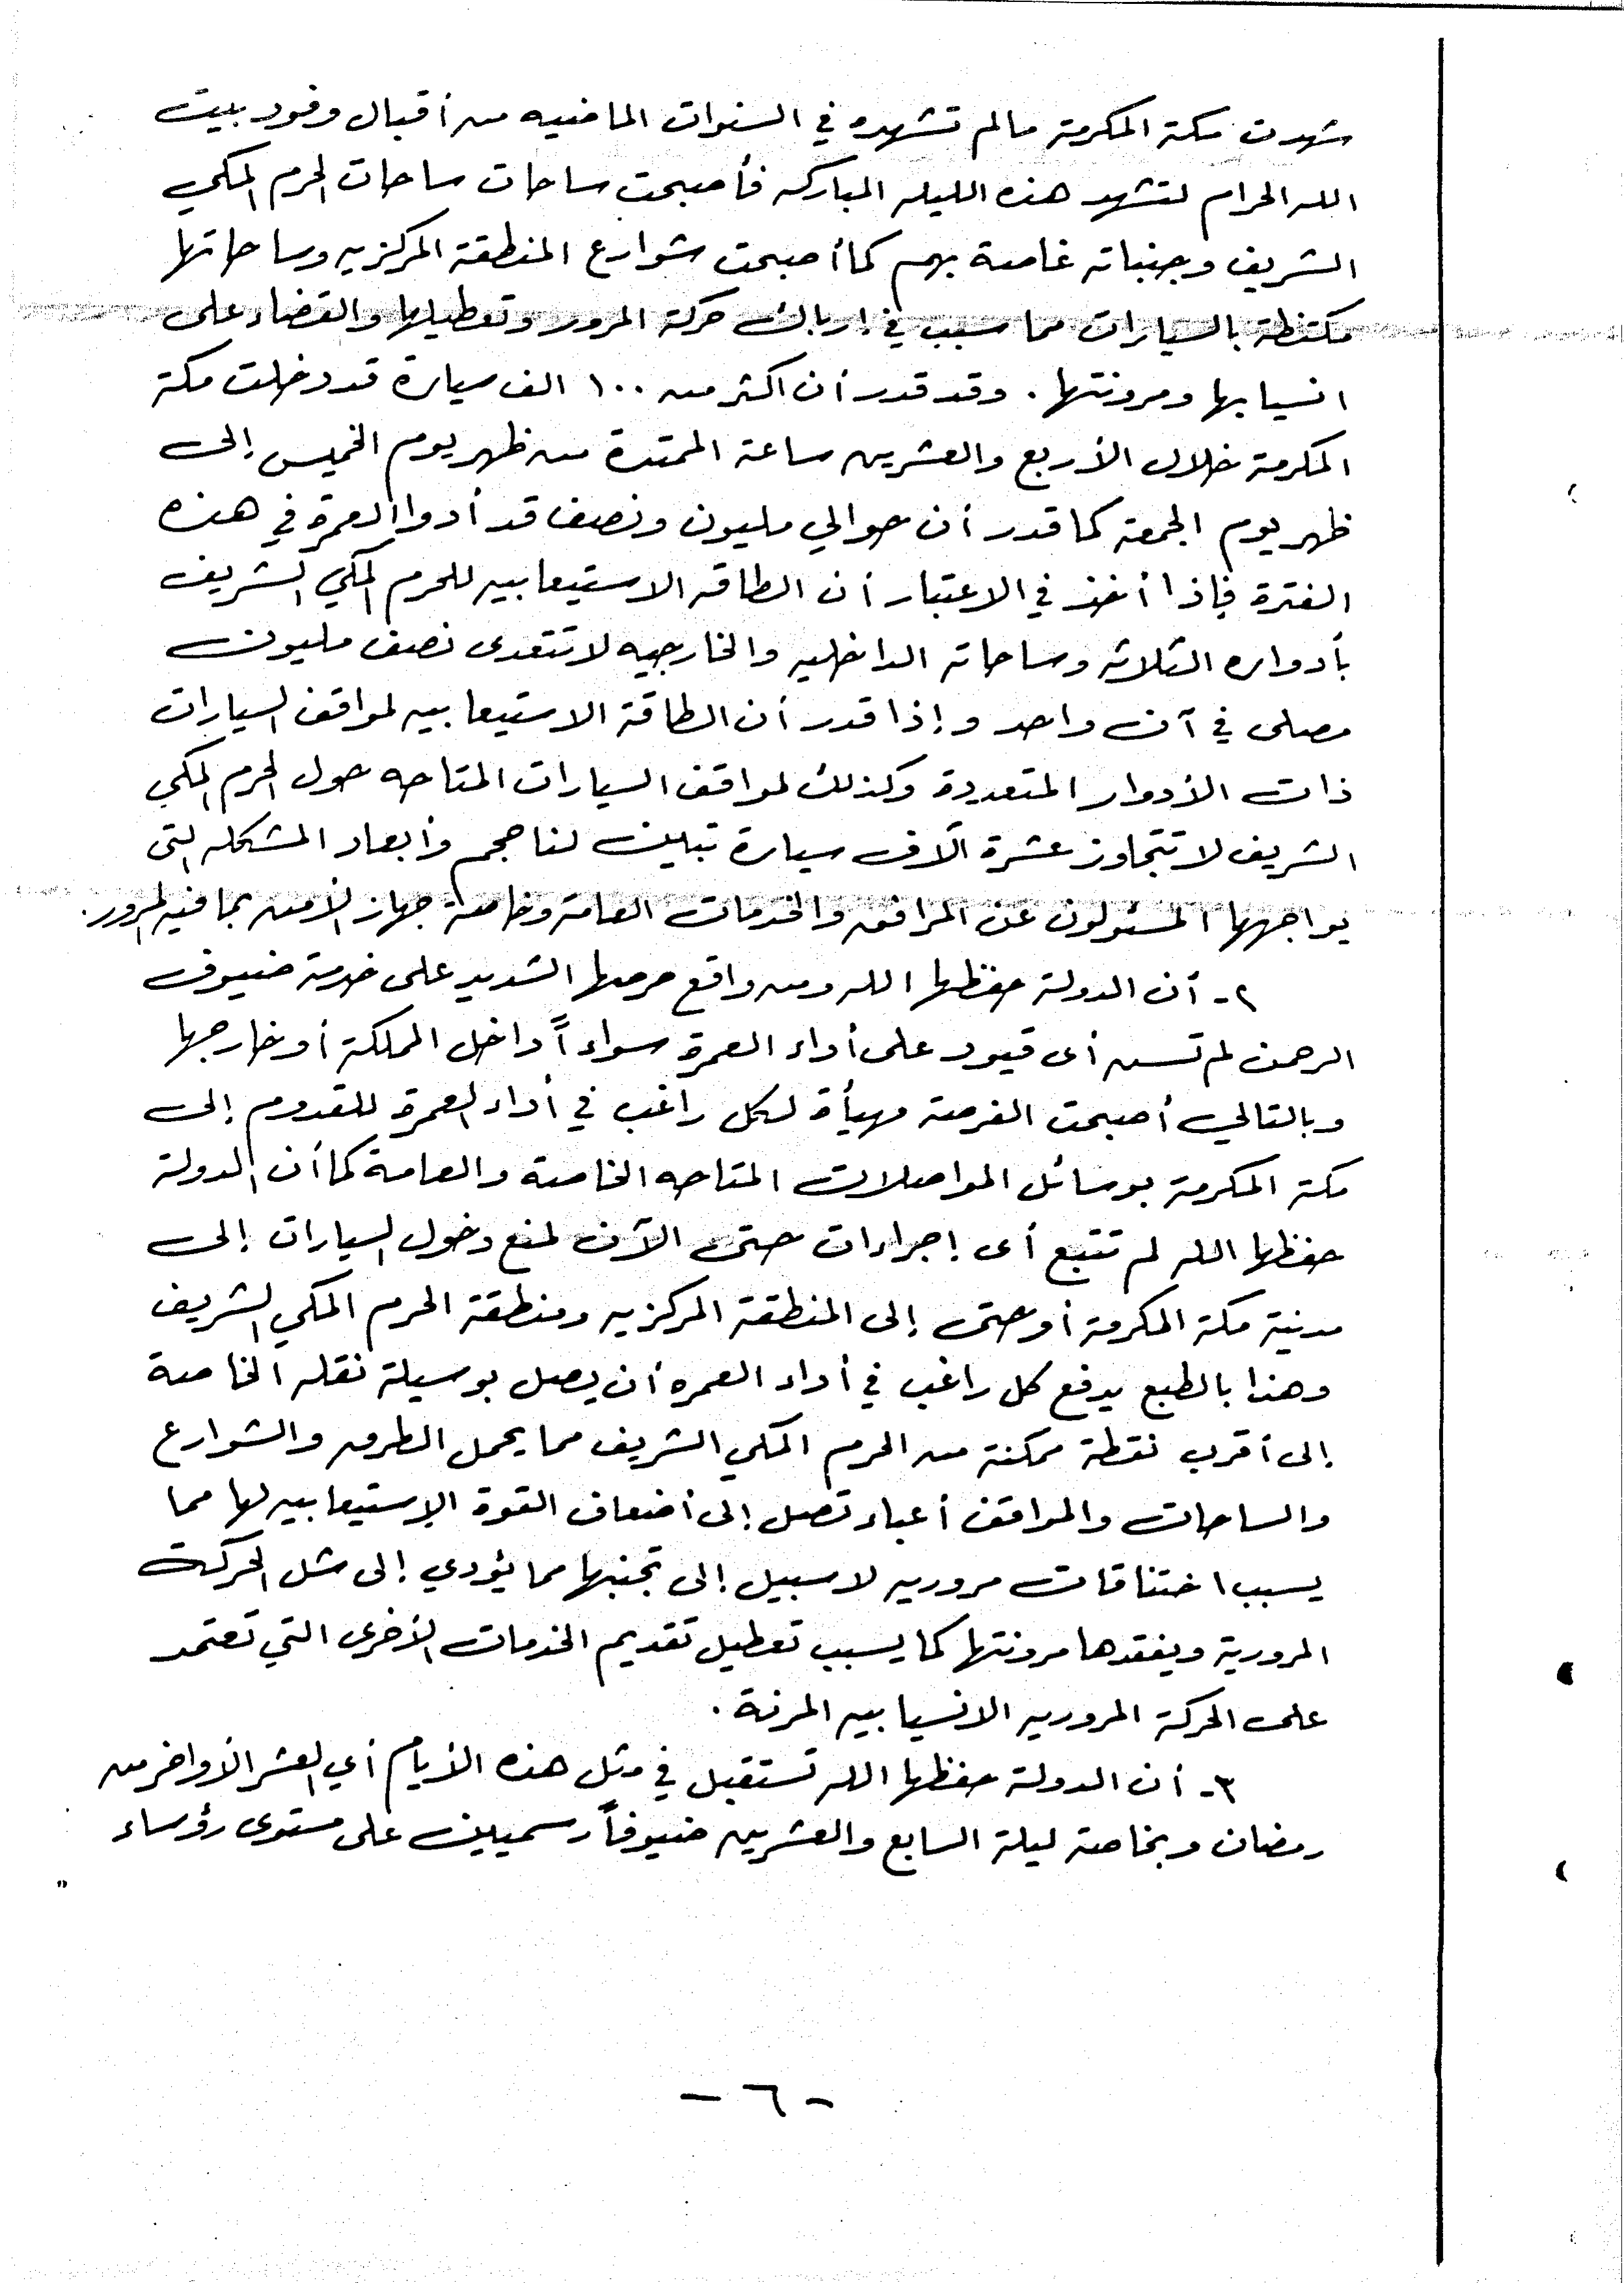 شهدت مكة المكرمة مالم تشهده في السنوات الماضيه من أقبال وفود بيت
الله الحرام لتشهد هذه الليله المباركه فأصبحت ساحات ساحات الحرم المكي
الشريف وجنباته غاصة بهم كما أصبحت شوارع المنطقة المركزيه وساحاتها
مكتظة بالسيارات مما سبب في إرباك حركة المرور وتعطيلها والقضاء على
انسيابها ومرونتها . وقد قدر أن اكثر من ١٠٠ الف سيارة قد دخلت مكة
المكرمة خلال الأربع والعشرين ساعة الممتدة من ظهر يوم الخميس إلى
ظهر يوم الجمعة كما قدر أن حوالي مليون ونصف قد أدوا العمرة في هذه
الفترة فإذا أخذ في الاعتبار أن الطاقه الاستيعابيه للحرم المكي الشريف
بأدواره الثلاثه وساحاته الداخليه والخارجيه لا تتعدى نصف مليون
مصلى في آن واحد وإذا قدر أن الطاقة الاستيعابيه لمواقف السيارات
ذات الأدوار المتعددة وكذلك لمواقف السيارات المتاحه حول الحرم المكي
الشريف لا تتجاوز عشرة آلاف سيارة تبين لنا حجم وأبعاد المشكله التى
يواجهها المسئولون عن المرافق والخدمات العامة وخاصة جهاز الأمن بما فيه المرور.
٢- أن الدولة حفظها الله ومن واقع حرصها الشديد على خدمة ضيوف
الرحمن لم تسن أى قيود على أداء العمرة سواءاً داخل المملكة أو خارجها
وبالتالي أصبحت الفرصة مهيأة لكل راغب في أداء العمرة للقدوم إلى
مكة المكرمة بوسائل المواصلات المتاحه الخاصة والعامة كما أن الدولة
حفظها الله لم تتبع أى إجراءات حتى الآن لمنع دخول السيارات إلى
مدينة مكة المكرمة أو حتى إلى المنطقة المركزيه ومنطقة الحرم المكي الشريف
وهذا بالطبع يدفع كل راغب في أداء العمره أن يصل بوسيلة نقله الخاصة
إلى أقرب نقطة ممكنة من الحرم المكي الشريف مما يحمل الطرق والشوارع
والساحات والمواقف أعباء تصل إلى أضعاف القوة الإستيعابيه لها مما
يسبب اختناقات مروريه لا سبيل إلى تجنبها مما يؤدي إلى شل الحركة
المرورية ويفقدها مرونتها كما يسبب تعطيل تقديم الخدمات الأخرى التي تعتمد
على الحركة المروريه الانسيابيه المرنة .
٣- أن الدولة حفظها الله تستقبل في مثل هذه الأيام أي العشر الأواخر من
رمضان وبخاصة ليلة السابع والعشرين ضيوفاً رسميين على مستوى رؤساء
- ٦ -